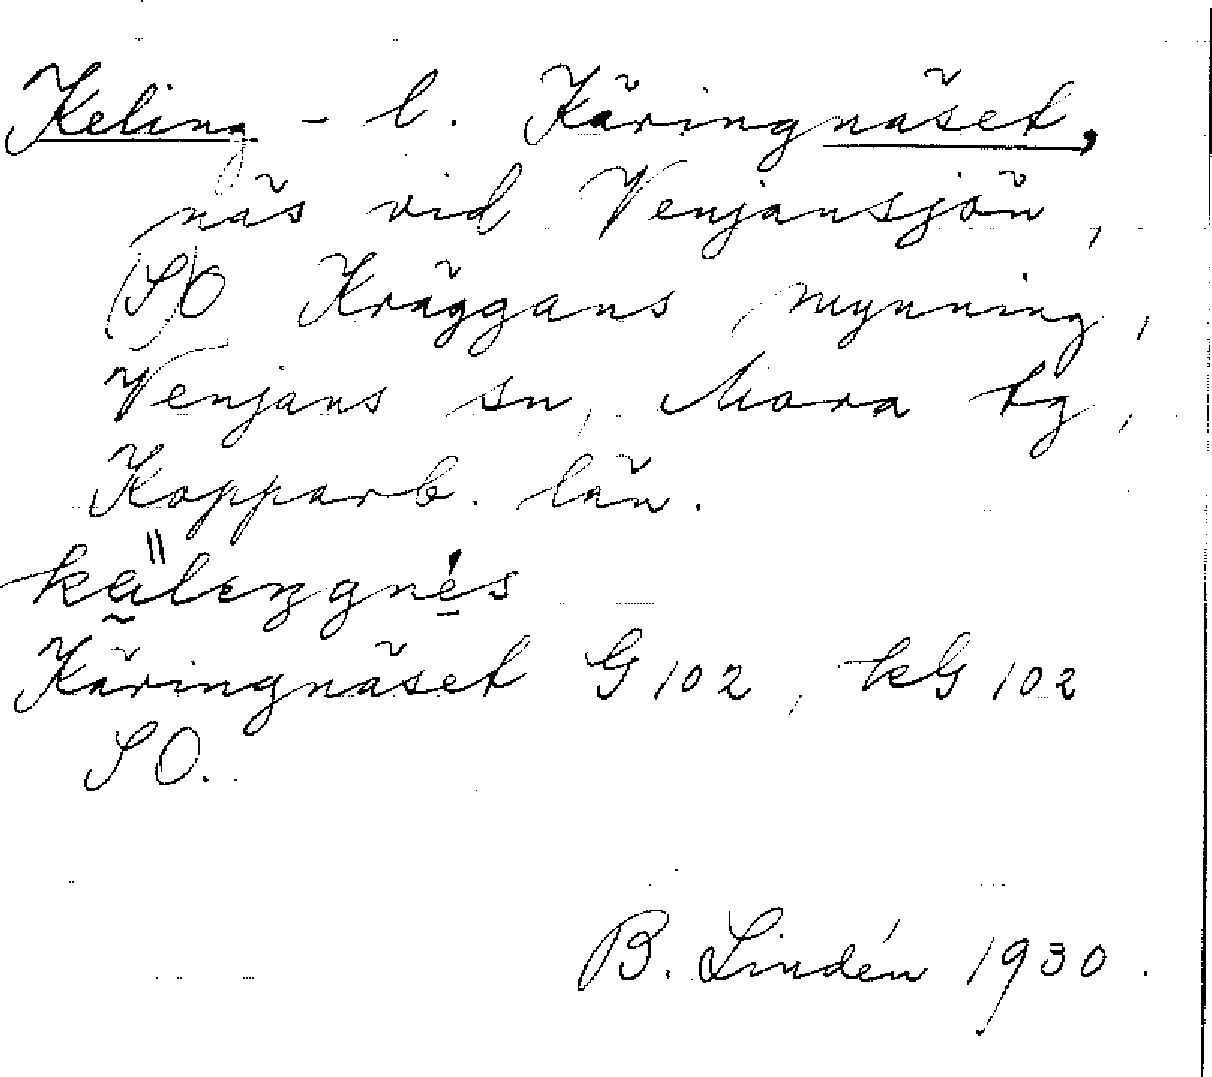 Keling- l. Käringnäset,
näs vid Venjansjön,
(S)O Kräggans mynning,
Venjans sn, Mora tg,
Kopparb. län.
Käringnäset G 102, kG 102
SO.
B. Lindén 1930.